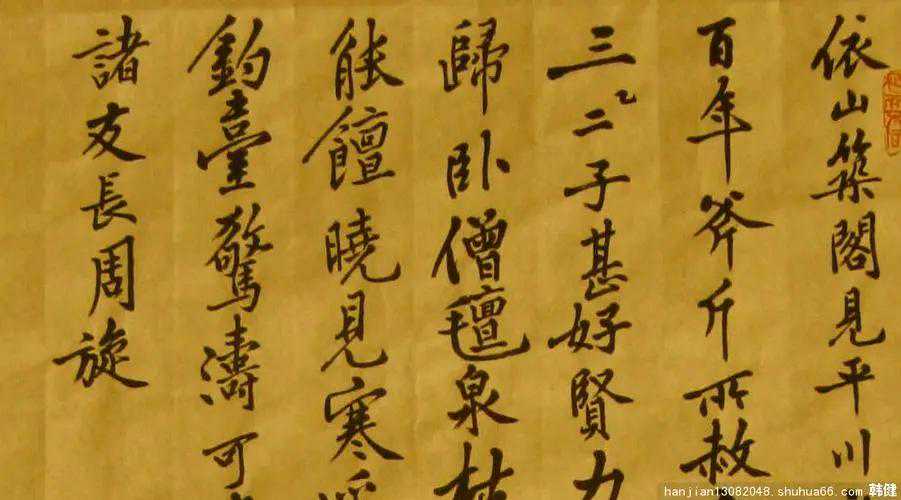 依山築閣見平川
百年斧斤所赦
三二子甚好賢力
歸卧僧氈泉枯
能饘曉見寒
釣臺驚濤可
諸友長周旋
hanjian13082048.shuhua66.com 韩健